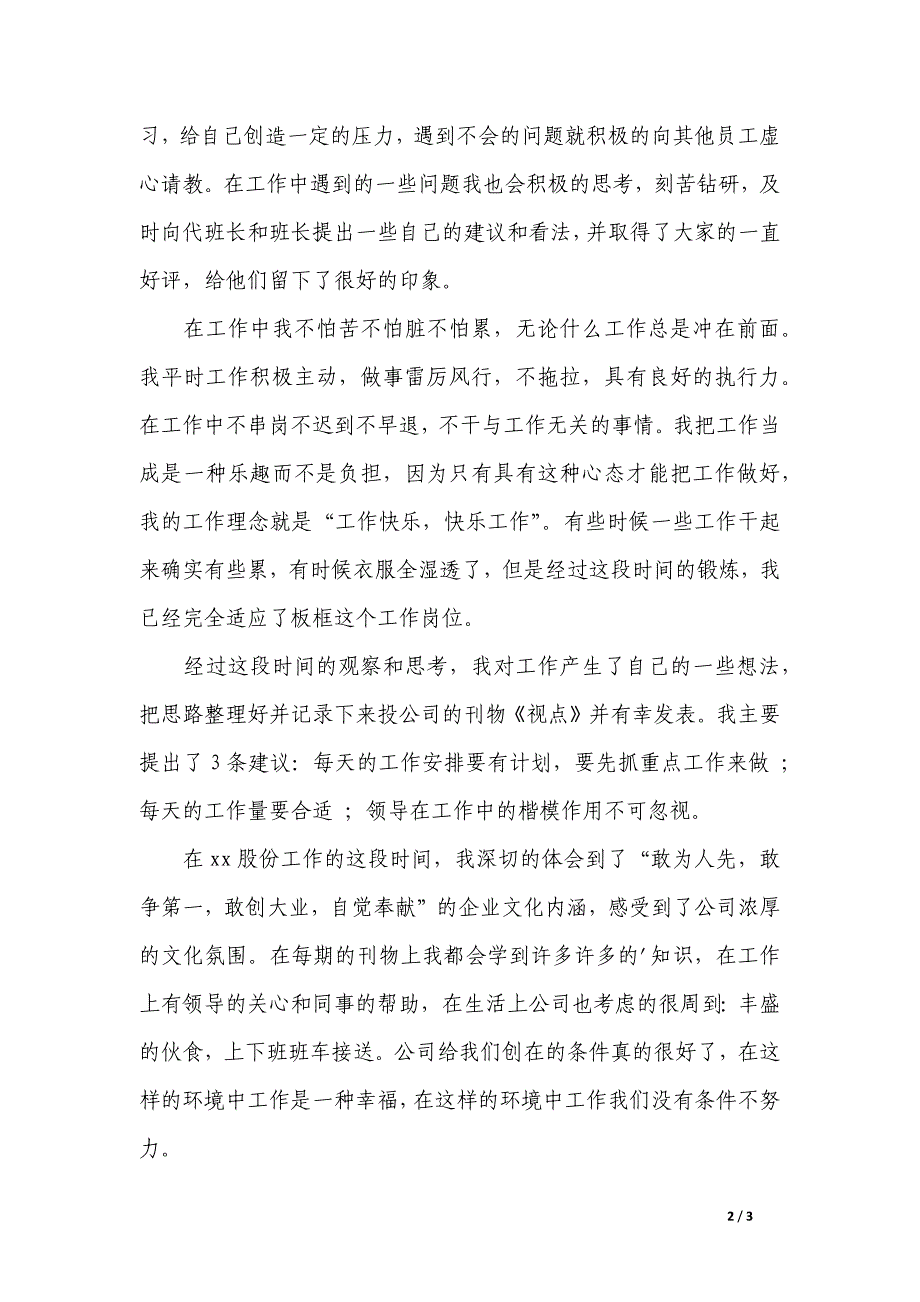 习，给自己创造一定的压力，遇到不会的问题就积极的向其他员工虚
心请教。在工作中遇到的一些问题我也会积极的思考，刻苦钻研，及
时向代班长和班长提出一些自己的建议和看法，并取得了大家的一直
好评，给他们留下了很好的印象。
在工作中我不怕苦不怕脏不怕累，无论什么工作总是冲在前面。
我平时工作积极主动，做事雷厉风行，不拖拉，具有良好的执行力。
在工作中不串岗不迟到不早退，不干与工作无关的事情。我把工作当
成是一种乐趣而不是负担，因为只有具有这种心态才能把工作做好，
我的工作理念就是“工作快乐，快乐工作”。有些时候一些工作干起
来确实有些累，有时候衣服全湿透了，但是经过这段时间的锻炼，我
已经完全适应了板框这个工作岗位。
经过这段时间的观察和思考，我对工作产生了自己的一些想法，
把思路整理好并记录下来投公司的刊物《视点》并有幸发表。我主要
提出了 3 条建议：每天的工作安排要有计划，要先抓重点工作来做 ；
每天的工作量要合适 ；领导在工作中的楷模作用不可忽视。
在 xx 股份工作的这段时间，我深切的体会到了“敢为人先，敢
争第一，敢创大业，自觉奉献”的企业文化内涵，感受到了公司浓厚
的文化氛围。在每期的刊物上我都会学到许多许多的′知识，在工作
上有领导的关心和同事的帮助，在生活上公司也考虑的很周到：丰盛
的伙食，上下班班车接送。公司给我们创在的条件真的很好了，在这
样的环境中工作是一种幸福，在这样的环境中工作我们没有条件不努
力。
2 / 3